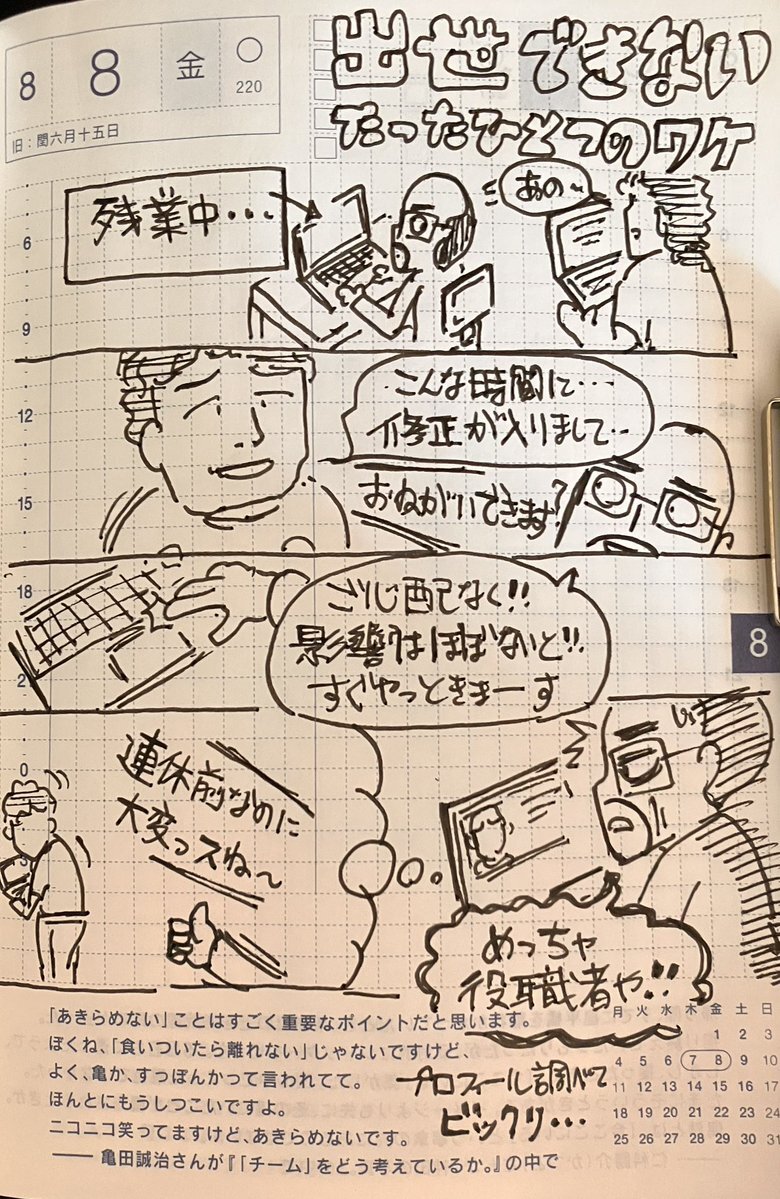 8 8 金
220
旧：閏六月十五日
出世できない
たったひとつのワケ
残業中・・・
あの〜
こんな時間に…
修正が入りまして…
おねがいできます?
ごしじ配なく!!
影響はほぼないと!!
すぐやっときまーす
連休前なのに
大変っスね〜
めっちゃ
役職者や!!
プロフィール調べて
ビックリ…
6
9
12
15
18
2
0
8
「あきらめない」ことはすごく重要なポイントだと思います。
ぼくね、「食いついたら離れない」じゃないですけど、
よく、亀か、すっぽんかって言われてて。
ほんとにもうしつこいですよ。
ニコニコ笑ってますけど、あきらめないです。
―― 亀田誠治さんが『「チーム」をどう考えているか。』の中で
月 火 水 木 金 土 日
1 2 3
4 5 6 7 8 9 10
11 12 13 14 15 16 17
18 19 20 21 22 23 24
25 26 27 28 29 30 31